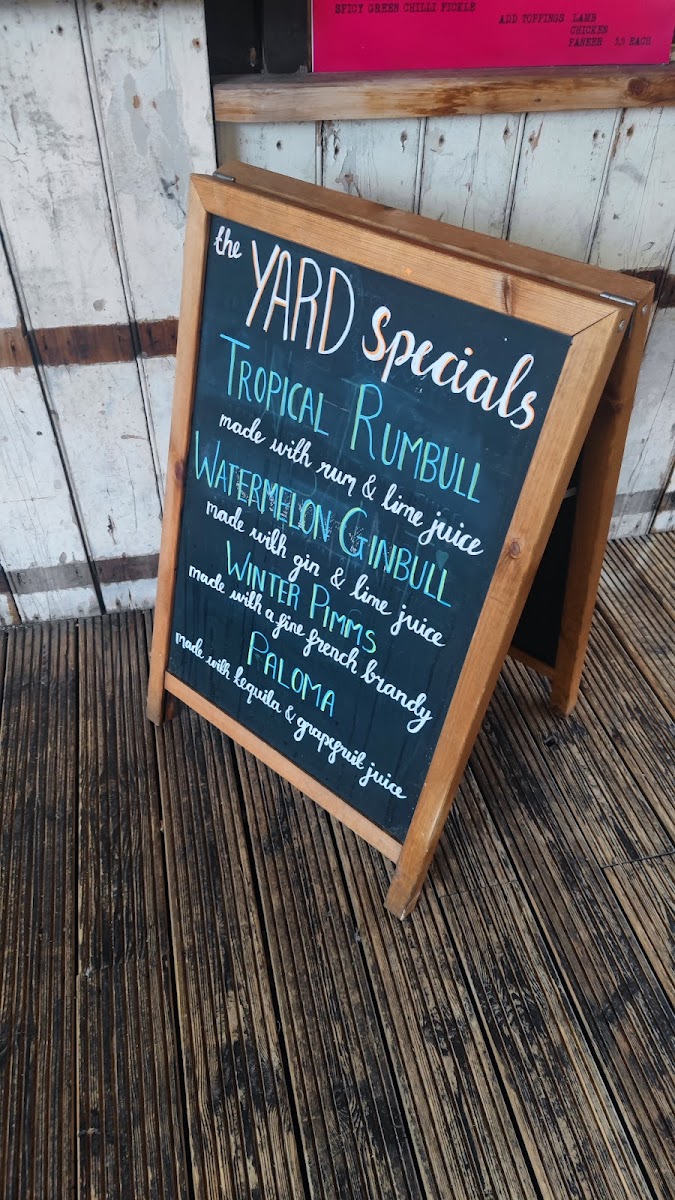 SPICY GREEN CHILLI PICKLE
ADD TOPPINGS LAMB
CHICKEN
PANEER 3.5 EACH
the YARD specials
TROPICAL RUMBULL
made with rum & lime juice
WATERMELON GINBULL
made with gin & lime juice
WINTER PIMMS
made with a fine french brandy
PALOMA
made with tequila & grapefruit juice